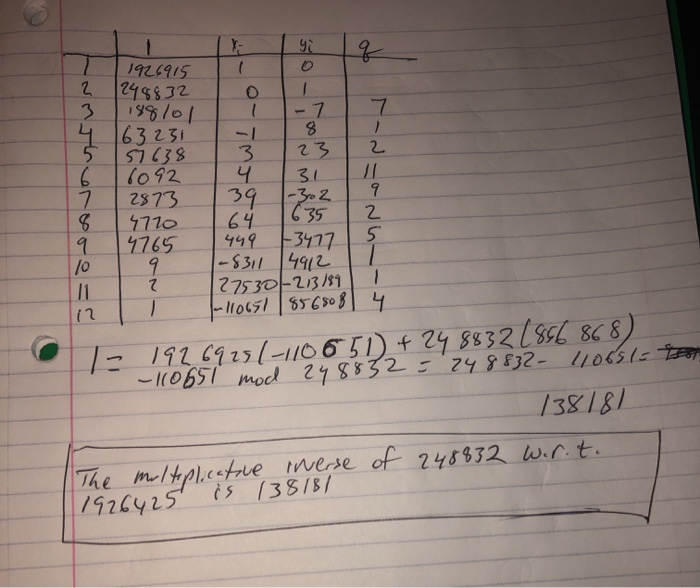 1 xi yi q
1 1926915 1 0
2 248832 0 1
3 188101 1 -7 7
4 63231 -1 8 1
5 57638 3 23 2
6 6092 4 31 11
7 2873 39 -302 9
8 4770 64 635 2
9 4765 449 -3477 5
10 9 -8311 4912 1
11 2 27530 -213189 1
12 1 -110651 856808 4
1 = 1926925(-110651) + 248832(856868)
-110651 mod 248832 = 248832 - 110651 =
138181
The multiplicative inverse of 248832 w.r.t.
1926425 is 138181